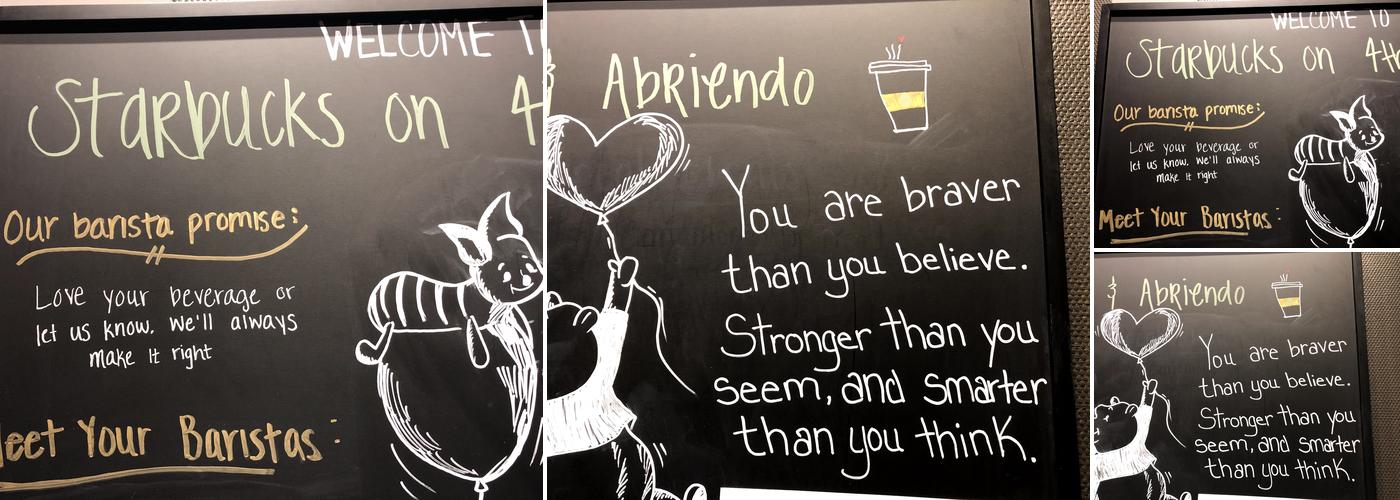 WELCOME
Starbucks on 4
Our barista promise:
Love your beverage or
let us know. We'll always
make it right
eet Your Baristas:
Abriendo
You are braver
than you believe.
Stronger than you
seem, and smarter
than you think.
WELCOME TO
Starbucks on 4th
Our barista promise:
Love your beverage or
let us know. We'll always
make it right
Meet Your Baristas:
Abriendo
You are braver
than you believe.
Stronger than you
seem, and smarter
than you think.